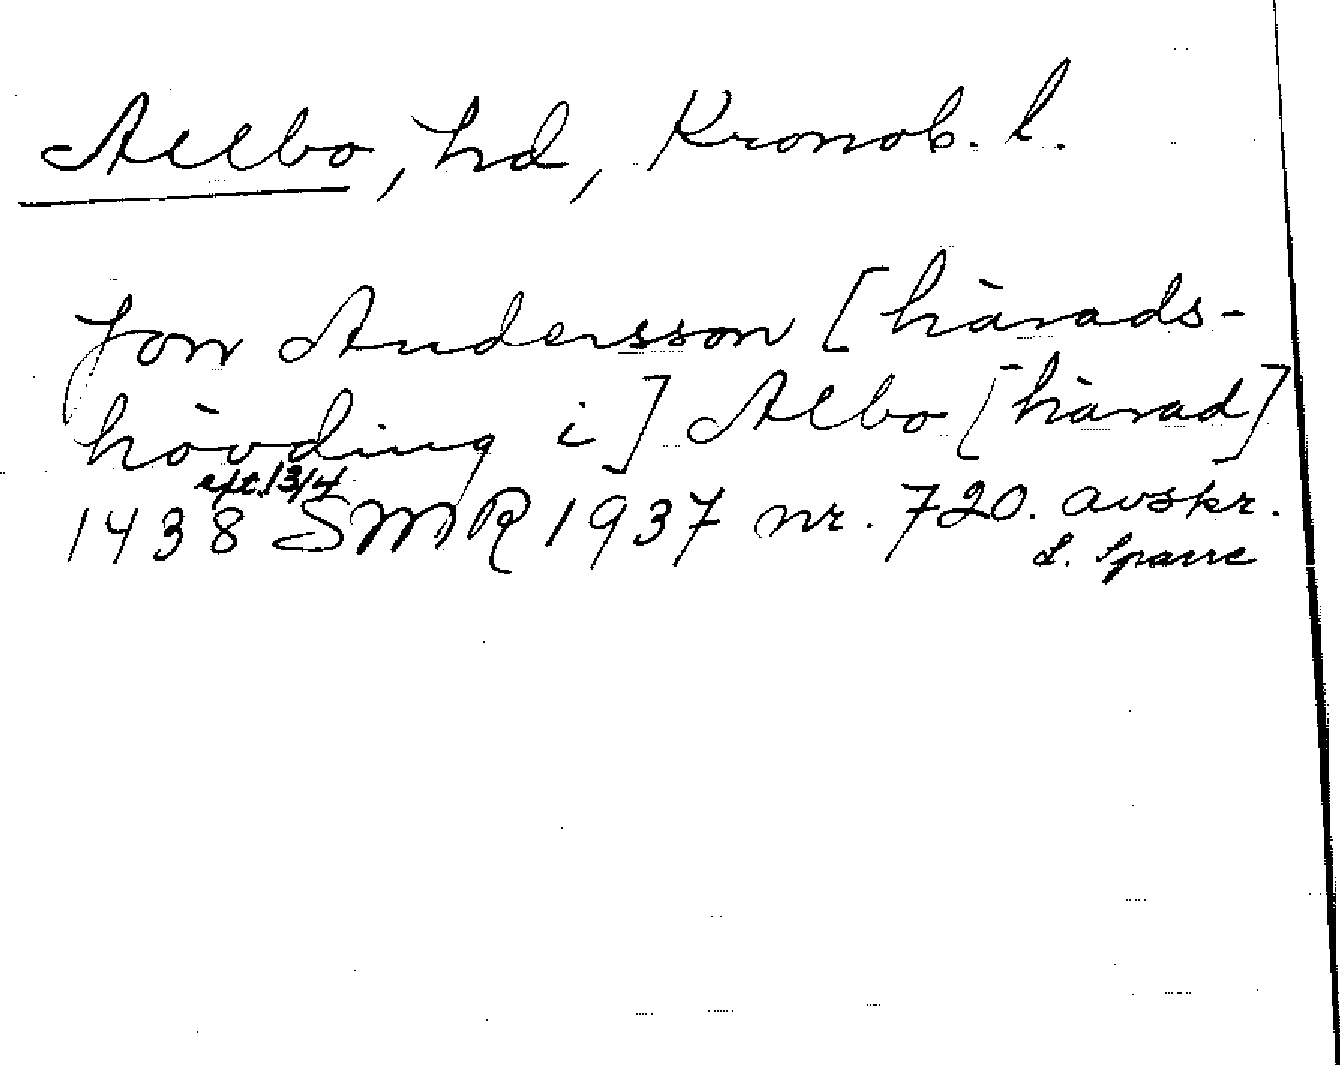 Allbo, hd, Kronob. l.
Jon Andersson [härads-
hövding i] Albo [härad]
eft. 13/4
1438 SMR 1937 nr. 720. avskr.
L. Sparre